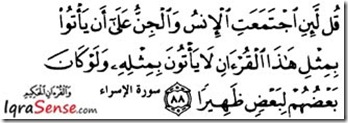 قُل لَّئِنِ ٱجْتَمَعَتِ ٱلْإِنسُ وَٱلْجِنُّ عَلَىٰٓ أَن يَأْتُوا۟
بِمِثْلِ هَٰذَا ٱلْقُرْءَانِ لَا يَأْتُونَ بِمِثْلِهِۦ وَلَوْ كَانَ
بَعْضُهُمْ لِبَعْضٍ ظَهِيرًا ٨٨ سورة الإسراء
وَالْقُرْآنِ الْحَكِيمِ
IqraSense.com